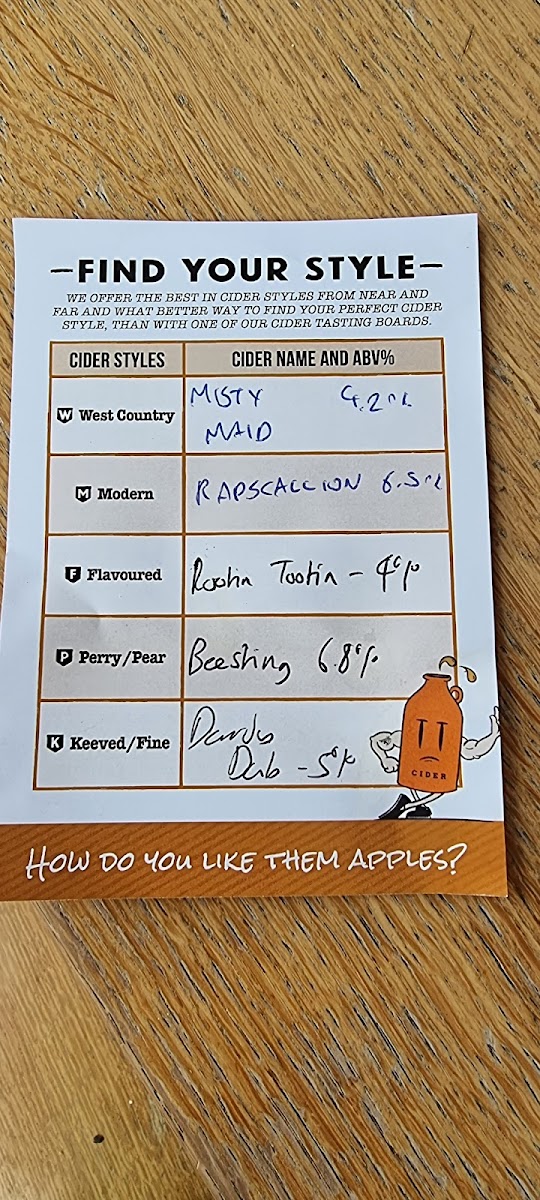 –FIND YOUR STYLE–
WE OFFER THE BEST IN CIDER STYLES FROM NEAR AND
FAR AND WHAT BETTER WAY TO FIND YOUR PERFECT CIDER
STYLE, THAN WITH ONE OF OUR CIDER TASTING BOARDS.
CIDER STYLES CIDER NAME AND ABV%
W West Country MISTY 4.2%
MAID
M Modern RAPSCALLION 6.5%
F Flavoured Rootin Tootin – 4%
P Perry/Pear Beesting 6.8%
K Keeved/Fine
Dab – 5%
CIDER
HOW DO YOU LIKE THEM APPLES?